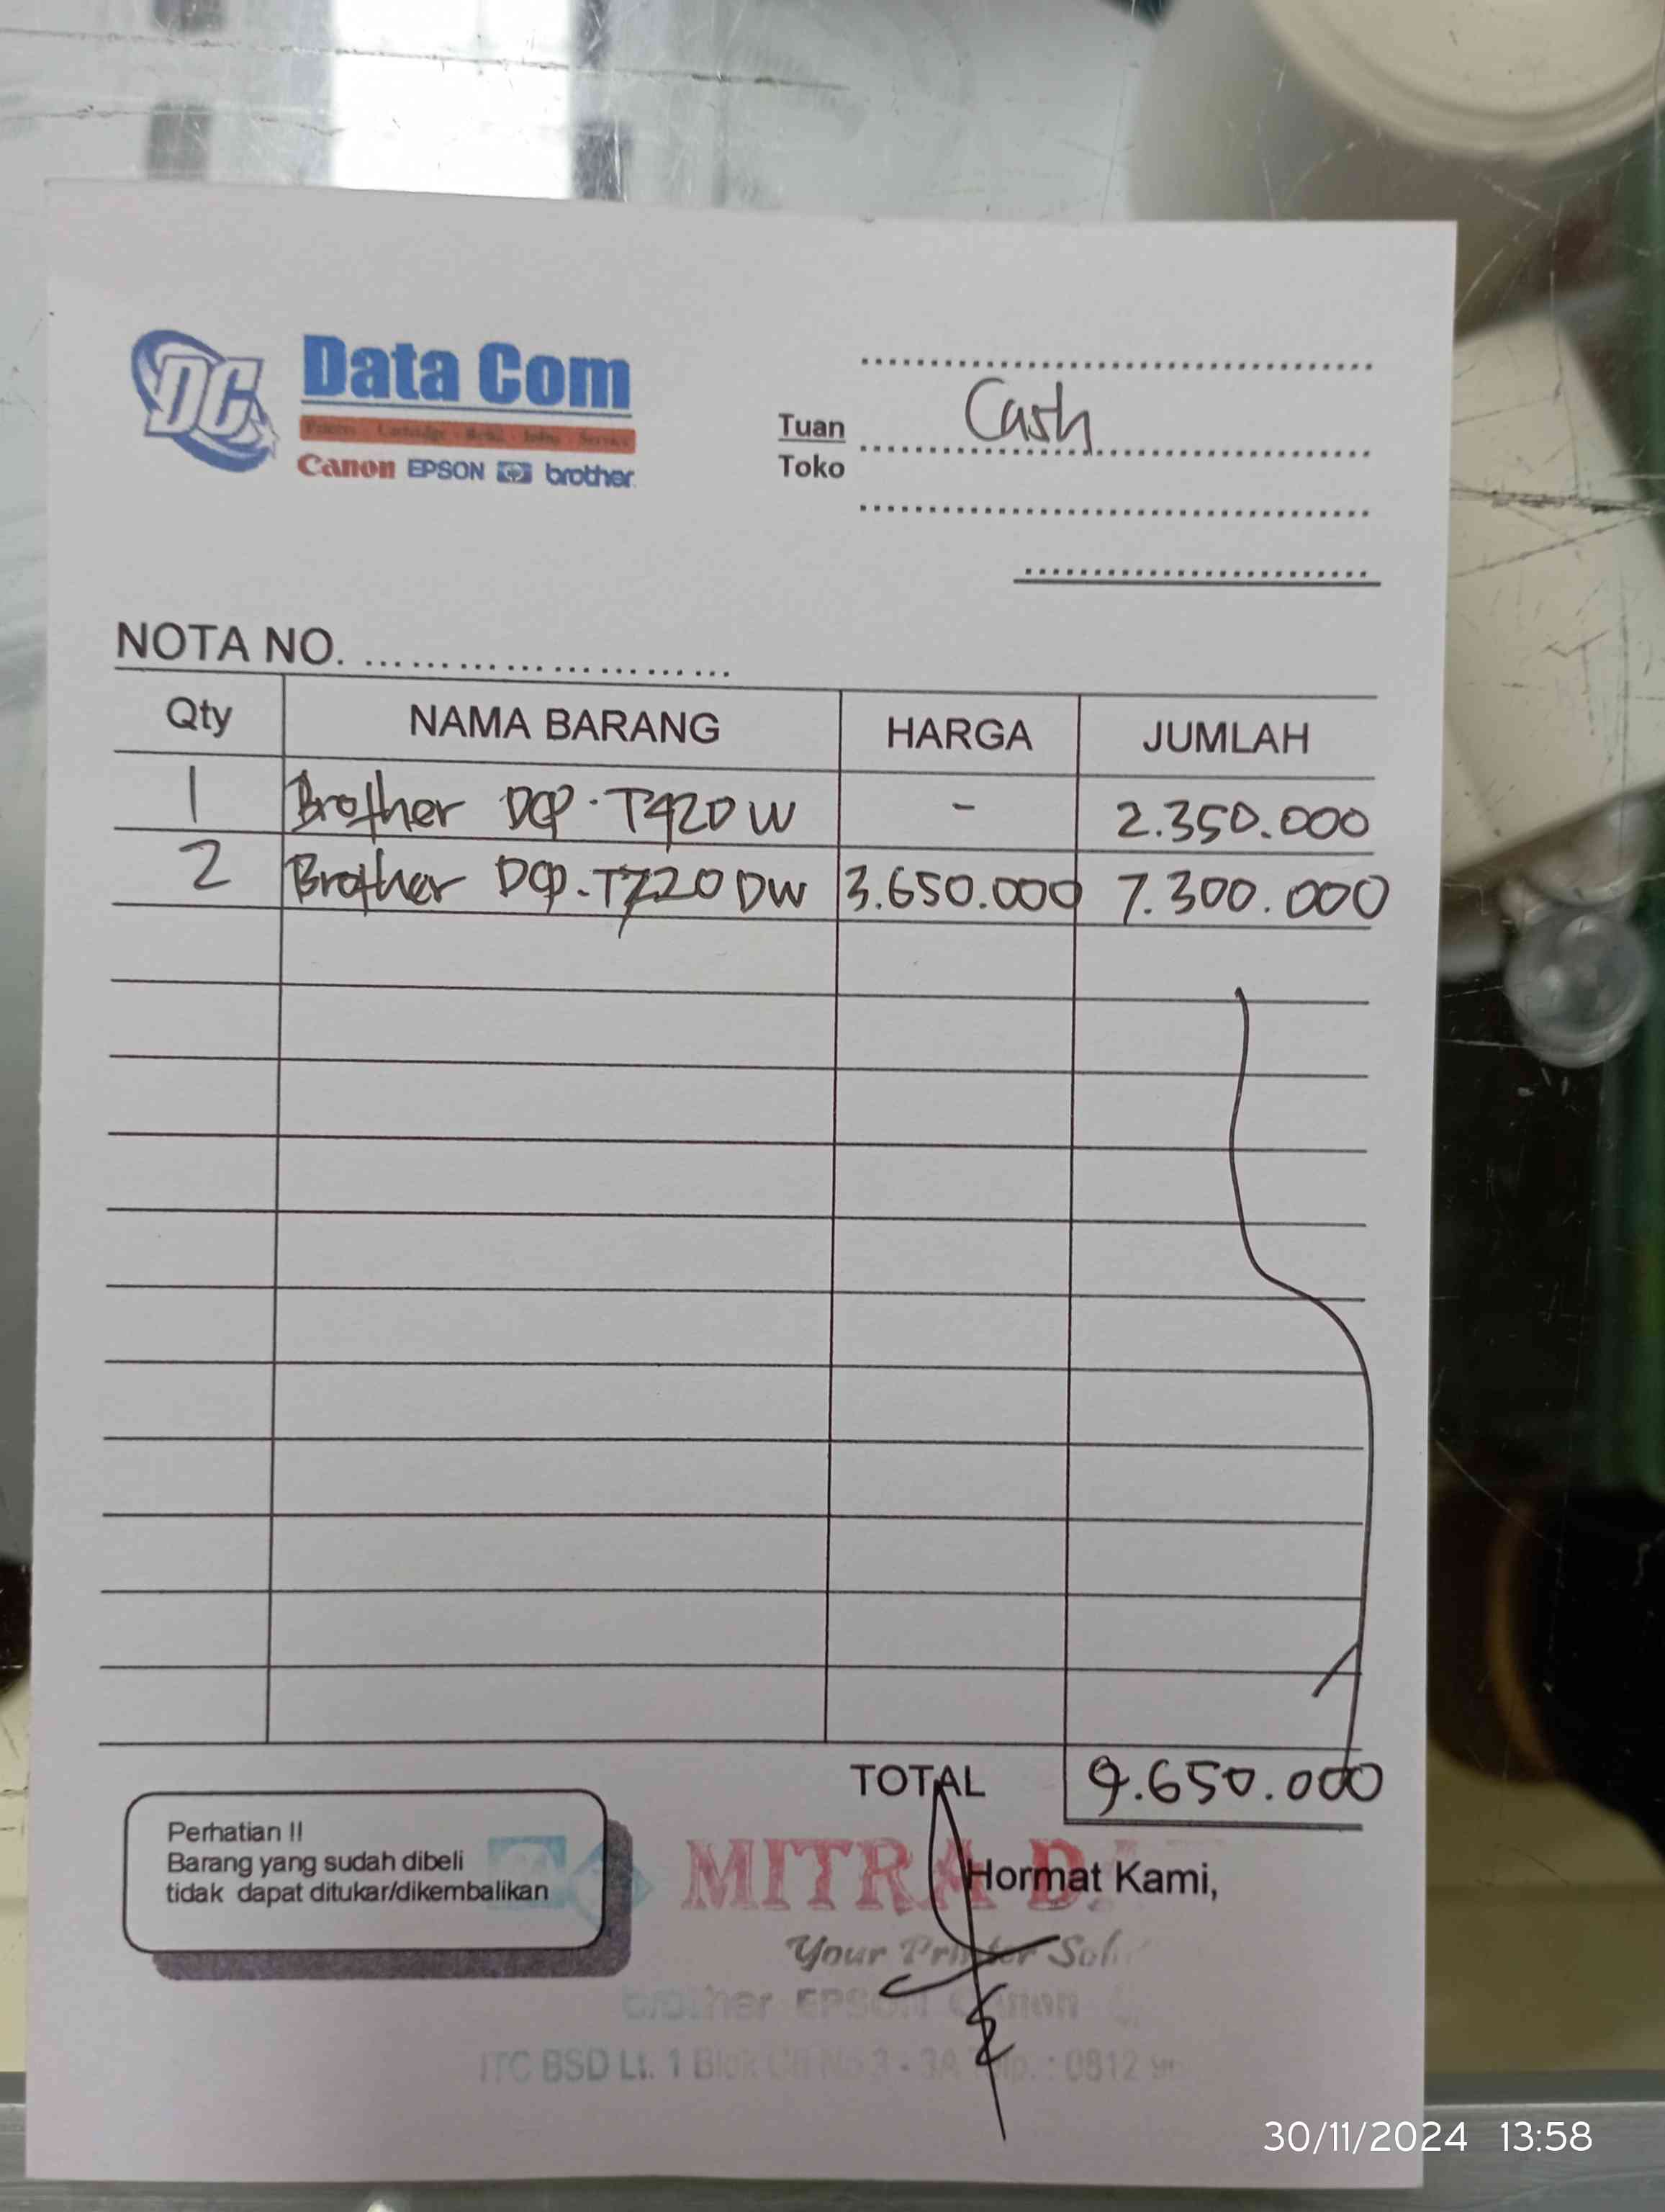 DC
Data Com
Canon EPSON hp brother
Cash
Tuan
Toko
NOTA NO.
Qty NAMA BARANG HARGA JUMLAH
1 Brother DCP-T420W - 2.350.000
2 Brother DCP-T720DW 3.650.000 7.300.000
TOTAL 9.650.000
Perhatian !!
Barang yang sudah dibeli
tidak dapat ditukar/dikembalikan
Hormat Kami,
MITRA
Your Printer
brother EPSON Canon
ITC BSD Lt. 1 Blok No 3 - 3A Telp. : 0812
30/11/2024 13:58